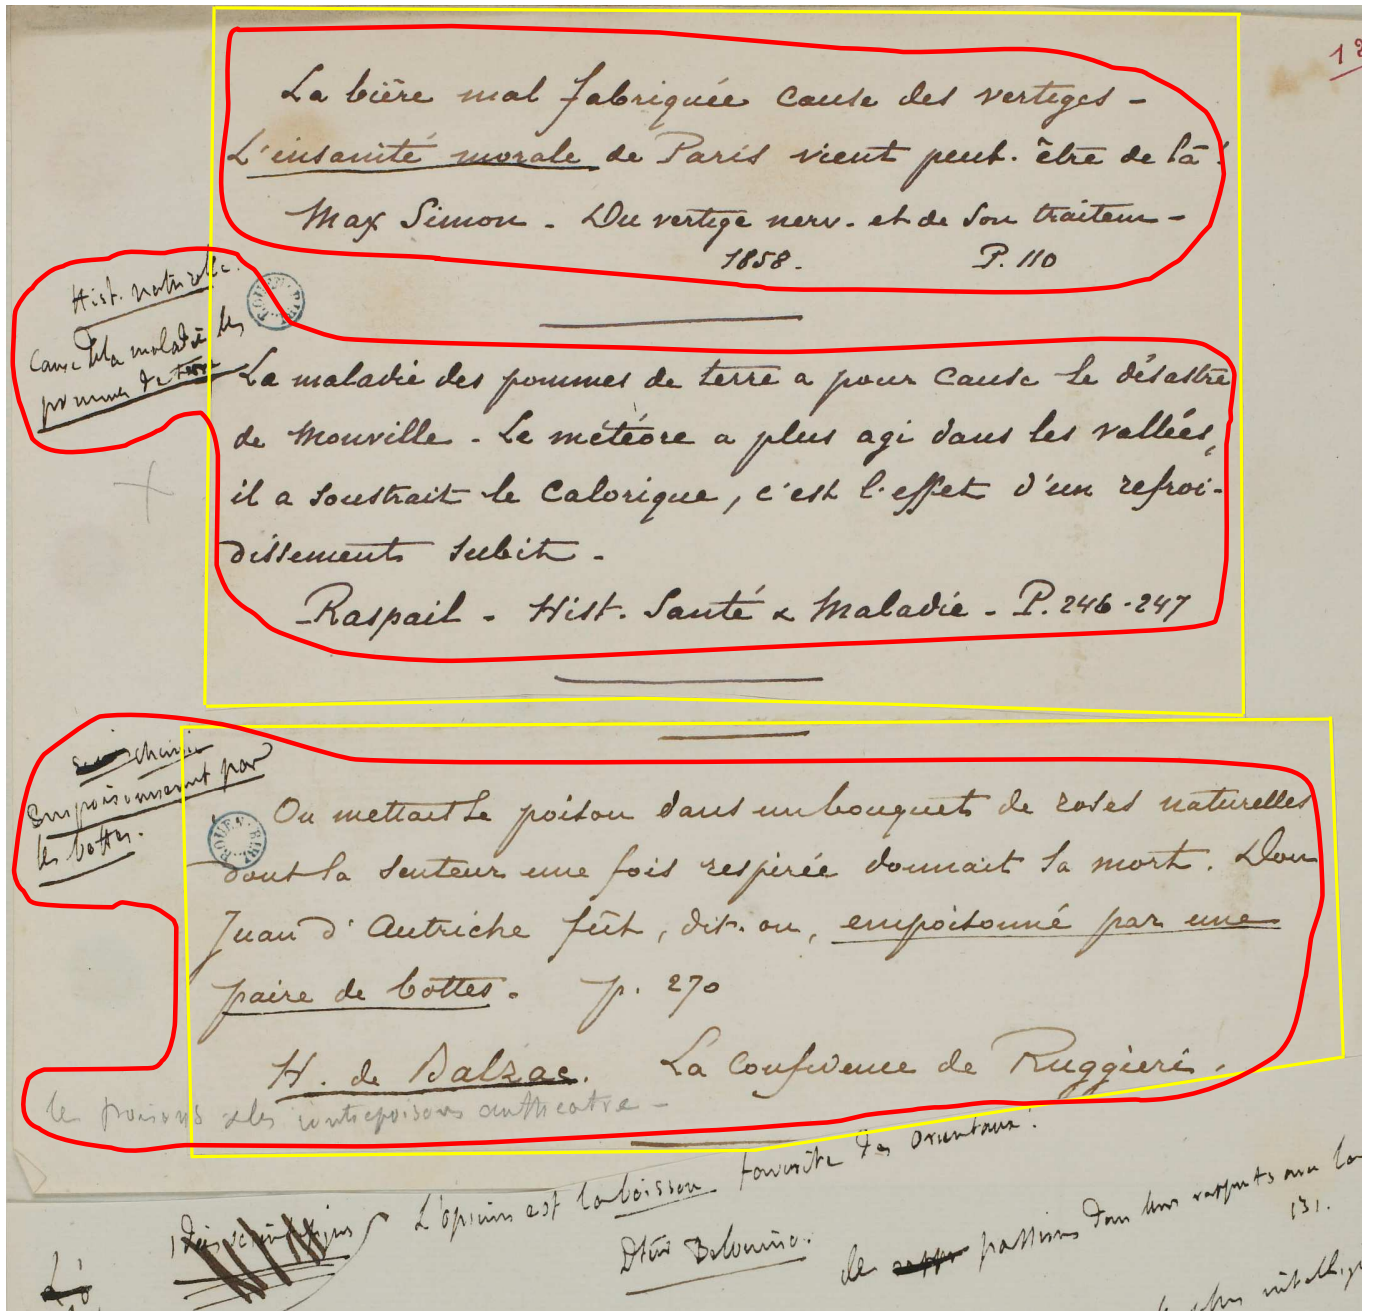 12
La bière mal fabriquée cause des vertiges -
L'insanité morale de Paris vient peut-être de là!
Max Simon - Du vertige nerv. et de son traitem -
1858. P. 110
Hist. naturelle.
Cause de la maladie des
pommes de terre
La maladie des pommes de terre a pour cause le désastre
de Monville - Le météore a plus agi dans les vallées,
il a soustrait le calorique, c'est l'effet d'un refroi-
dissements subit -
Raspail - Hist. Santé & Maladie - P. 246-247
chimie
Empoisonnement par
les bottes.
On mettait le poison dans un bouquet de roses naturelles
dont la senteur une fois respirée donnait la mort. Don
Juan d'Autriche fût, dit-on, empoisonné par une
paire de bottes. p. 270
H. de Balzac. La confidence de Ruggieri.
les poisons & les contrepoisons au théatre -
L'opium est la boisson favorite des orientaux!
Dteur Belouino.
des passions dans leurs rapports avec la
131.